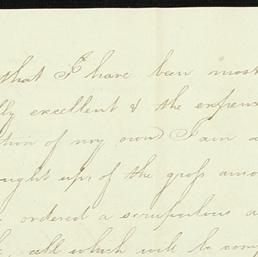 that I have been most
lly excellent & the expens
tion of my own I am a
ught up, of the gross amo
ordered a scrupulous a
all which will be com